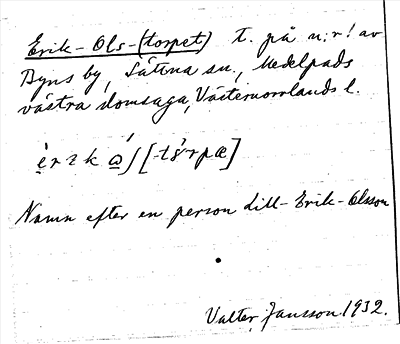 Erik-Ols-(torpet) t. på n:r 1 av
Byns by, Sättna sn., Medelpads
västra domsaga, Västernorrlands l.
Namn efter en person Lill-Erik-Olsson
Valter Jansson 1932.